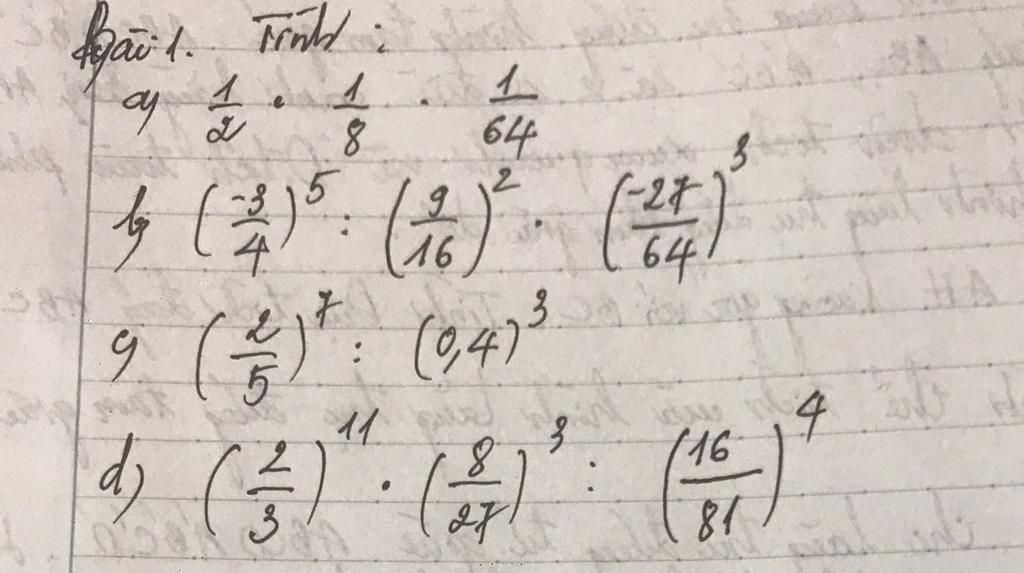 Bài 1. Tính :
a) 1/2 . 1/8 . 1/64
b) (-3/4)^5 : (9/16)^2 . (-27/64)^3
c) (2/5)^7 : (0,4)^3
d) (2/3)^11 . (8/27)^3 : (16/81)^4